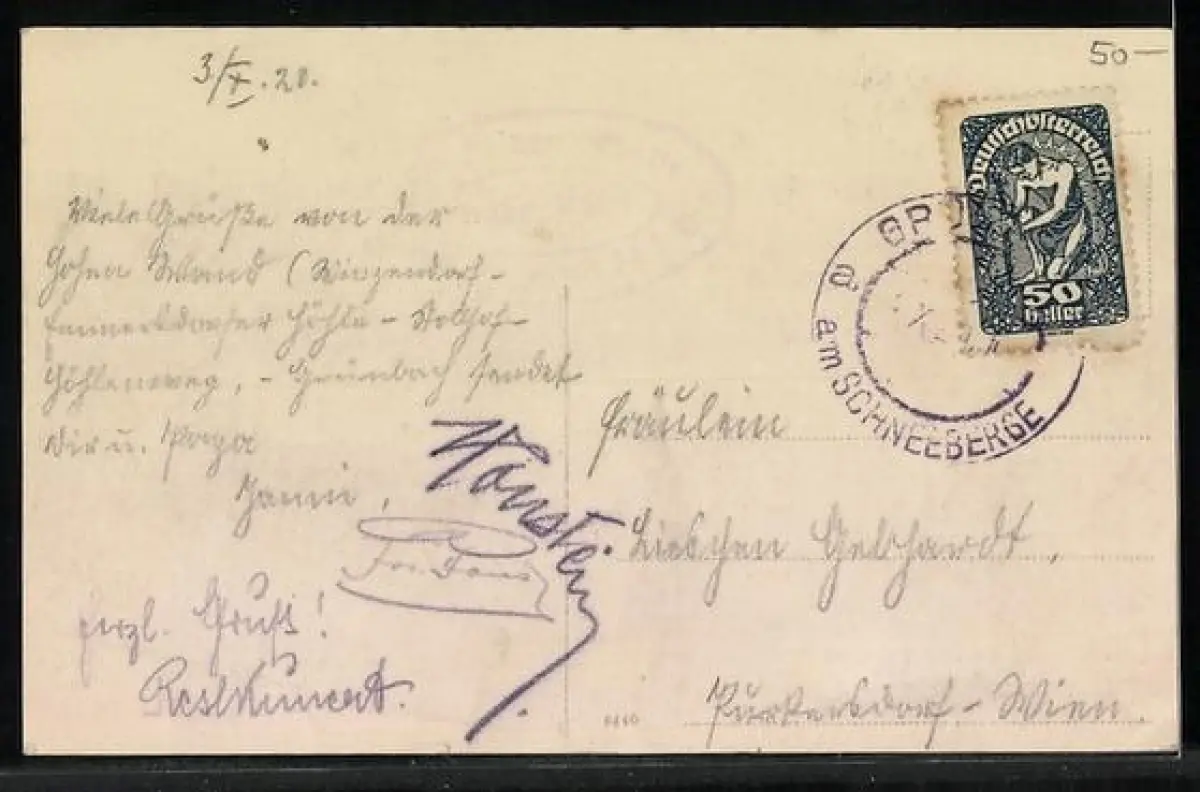 3/X. 20.
50—
Deutschösterreich
50
Heller
GR
a. am SCHNEEBERGE
Viele Grüße von der
Hohen Wand (Winzendorf-
Emmersdorfer Höhle – Stollhof-
Höhlenweg, – Grünbach sendet
Dir u. Papa
Hönstein
Herzl. Gruß!
Resl Kunert.
Fräulein
Lieschen Gebhardt,
Purkersdorf – Wien.